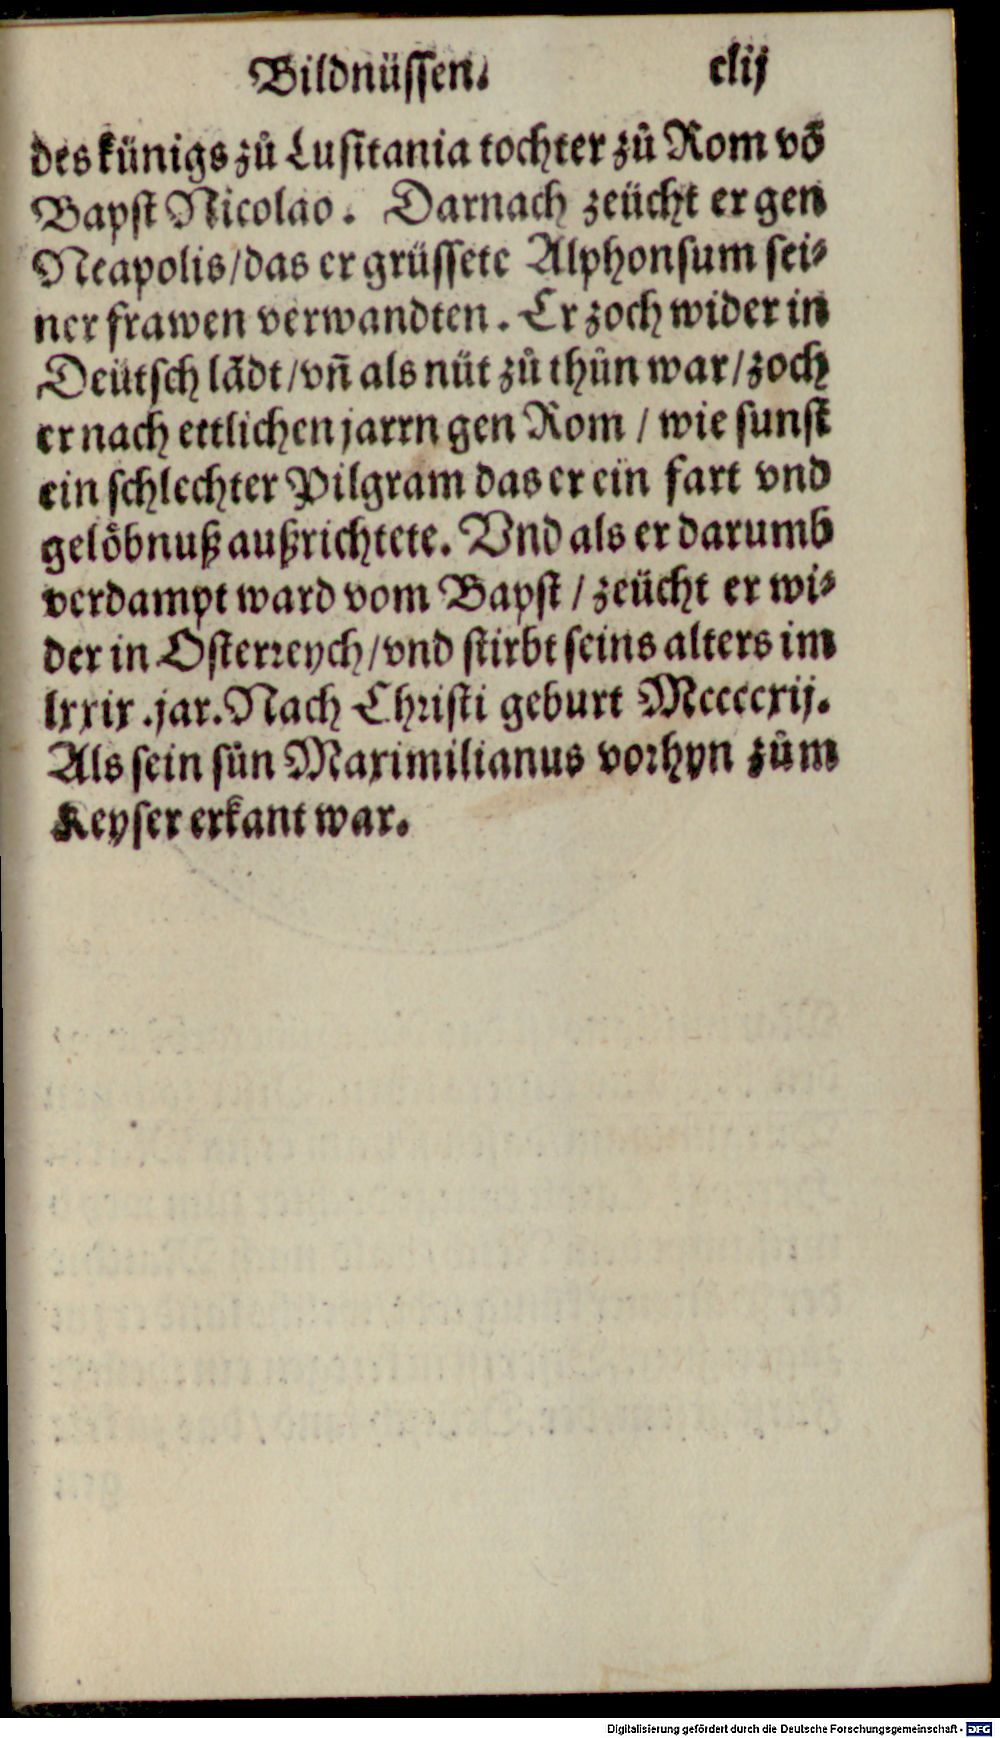 Bildnüssen. clij
des künigs zů Lusitania tochter zů Rom võ
Bapst Nicolao. Darnach zeücht er gen
Neapolis/das er grüssete Alphonsum sei-
ner frawen verwandten. Er zoch wider in
Deütsch lãdt/vñ als nüt zů thůn war/zoch
er nach ettlichen jarrn gen Rom / wie sunst
ein schlechter Pilgram das er ein fart vnd
gelöbnuß außrichtete. Vnd als er darumb
verdampt ward vom Bapst / zeücht er wi-
der in Osterreych/vnd stirbt seins alters im
lxxix .jar. Nach Christi geburt Mccccxij.
Als sein sůn Maximilianus vorhyn zům
Keyser erkant war.
Digitalisierung gefördert durch die Deutsche Forschungsgemeinschaft - DFG